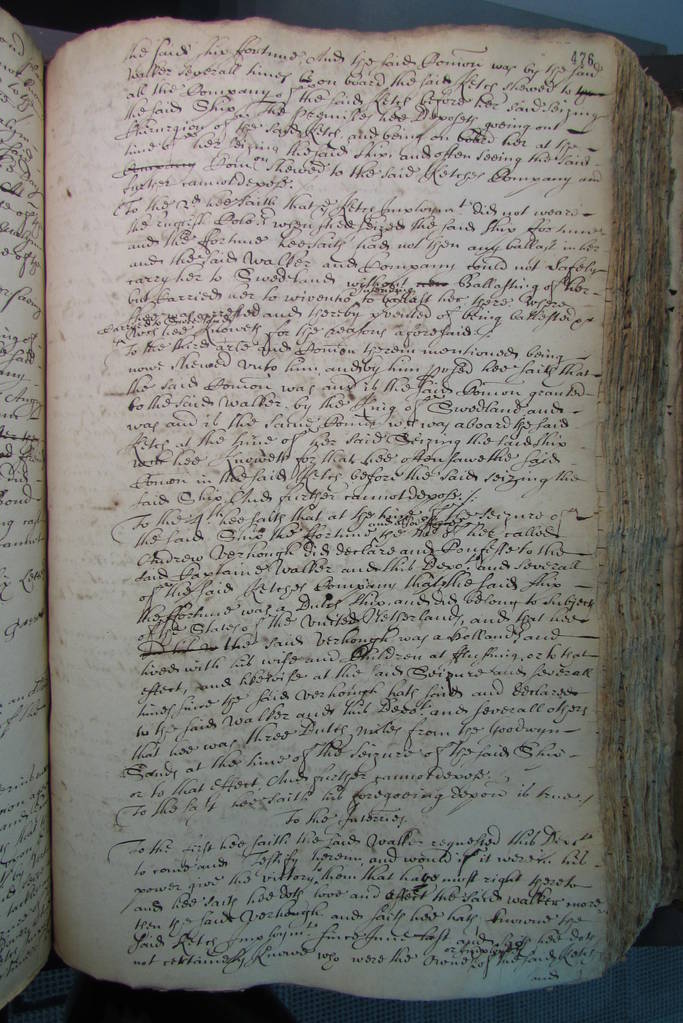 426
the said ship fortune, And the said Comon was by the said
Walker severall times on board the said Ketch shewed to
all the Company of the said Ketch before her said seizing
the said Ship. The premisses hee Deposeth goeing out
Chirurgion of the said Ketch, and being on board her at the
time of her seizing the said ship, and often seeing the said
Comon shewed to the said Ketches Company and
further cannot depose.
To the 2d hee saith that the Ketch Imploymt did not weare
the English Colors when shee seized the said ship fortune
and the ffortune hee saith had not then any ballast in her
and the said Walker and Company could not safely
carry her to Swedeland without Ballasting of her
but Carried her to wivenho to ballast her there where
and thereby prvented of being ballasted
hee knoweth for the reasons aforesaid
To the third arle and Comon therein mentioned being
now shewed unto him, and by him pused hee saith that
the said Comon was and is the said Comon granted
to the said Walker by the King of Swedland and
was and is the same Comon wch was aboard the said
Ketch at the time of her said Seizing the said ship
wch hee knoweth for that hee often sawe the said
Comon in the said Ketch before the said seizing the
said Ship And further cannot depose.
To the 4th hee saith that at the time of the seizure of
the said Ship the ffortune the Mr of her called
Andrew Verhough did declare and Confesse to the
said Captaine Walker and this Depot and severall
of the said Ketches Company that the said ship
the ffortune was a Dutch ship, and did belong to subjects
of the States of the United Netherlands, and that hee
the said Verhough was a Hollander and
lived with his wife and Children at fflushing, or to that
effect, and likewise at the said Seizure and severall
times since the said Verhough hath said and declared
to the said Walker and this Depot and severall others
that hee was three Dutch miles from the Goodwyn
Sands at the time of the seizure of the said Ship
or to that effect. And further cannot depose.
To the last hee saith his foregoeing depon is true
To the Interries
To the first hee saith the said Walker requested this Depot
to come and Testify herein, and would if it were in his
power give the victory to them that have most right thereto
and hee saith hee doth love and affect the said Walker more
then the said Verhough and saith hee hath knowne the
said Ketch Imploymt since June last and saith hee doth
not certainely knowe who were the Owners of the said Ketch
and